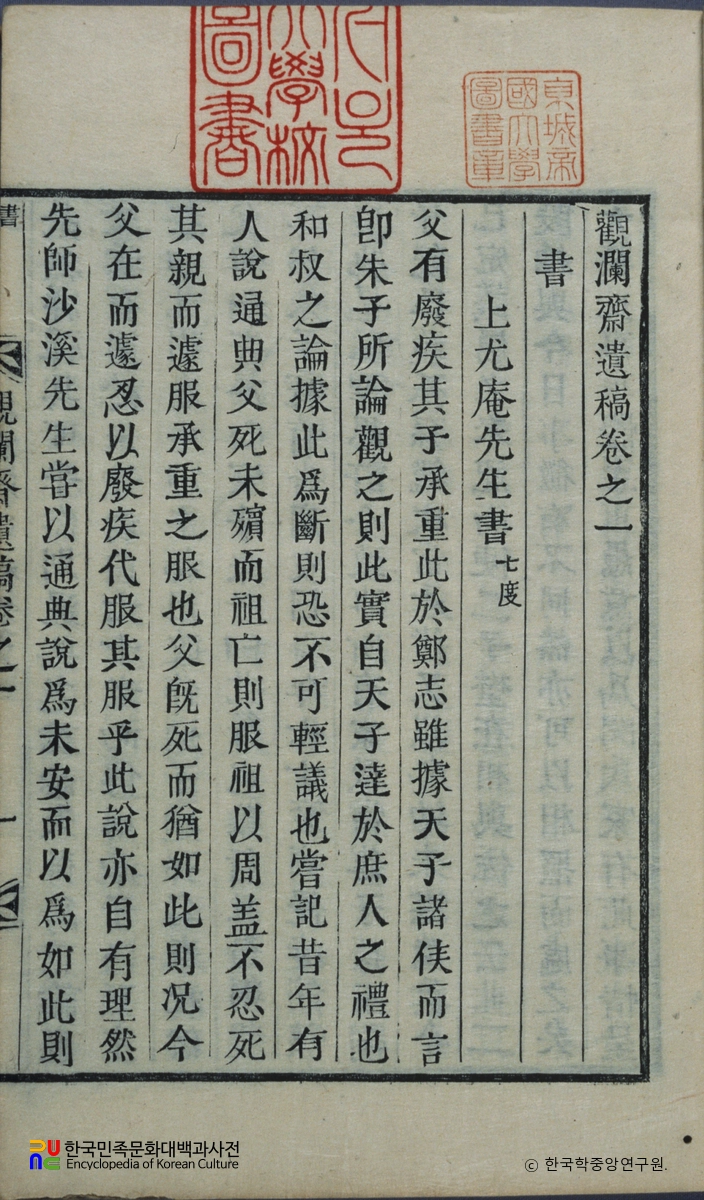 觀瀾齋遺稿卷之一
書
上尤庵先生書 七度
父有廢疾其子承重此於鄭志雖據天子諸侯而言
卽朱子所論觀之則此實自天子達於庶人之禮也
和叔之論據此爲斷則恐不可輕議也嘗記昔年有
人說通典父死未殯而祖亡則服祖以周盖不忍死
其親而遽服承重之服也父旣死而猶如此則况今
父在而遽忍以廢疾代服其服乎此說亦自有理然
先師沙溪先生嘗以通典說爲未安而以爲如此則
觀瀾齋遺稿卷之一
一
東城帝
國大學
圖書章
大學校
圖書
한국민족문화대백과사전
Encyclopedia of Korean Culture
© 한국학중앙연구원.